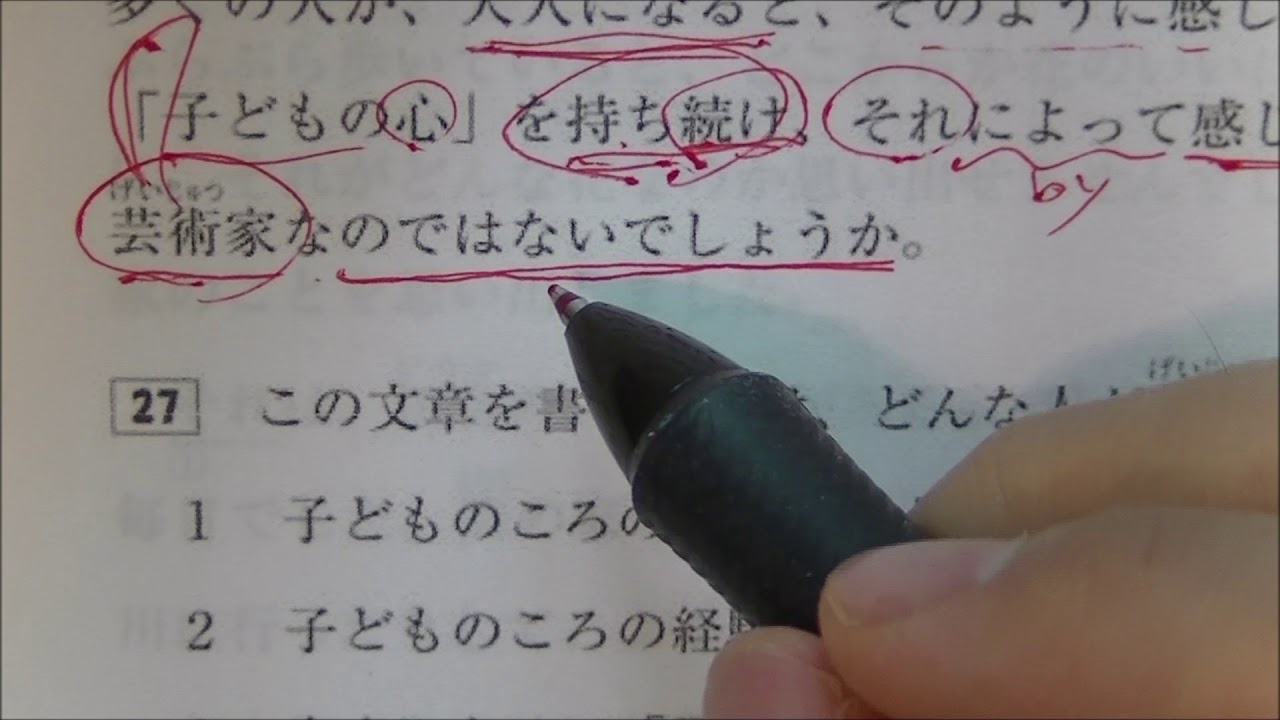 多くの人が、大人になると、そのように感じ
「子どもの心」を持ち続け、それによって感じ
by
げいじゅつ
芸術家なのではないでしょうか。
げいじ
27 この文章を書 どんな人が
1 子どものころの
2 子どものころの経験